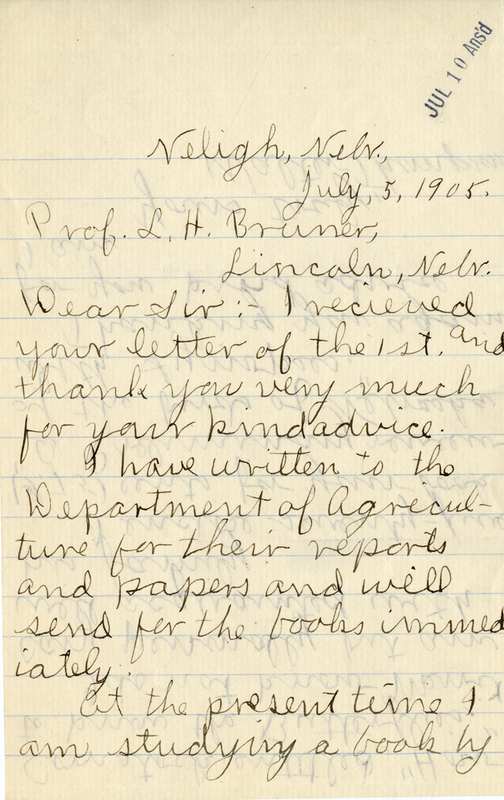 JUL 10 Ans'd
Neligh, Nebr.,
July, 5, 1905.
Prof. L. H. Bruner,
Lincoln, Nebr.
Dear Sir:- I recieved
your letter of the 1st. and
thank you very much
for your kind advice.
I have written to the
Department of Agricul-
ture for their reports
and papers and will
send for the books immed
iately.
At the present time I
am studying a book by